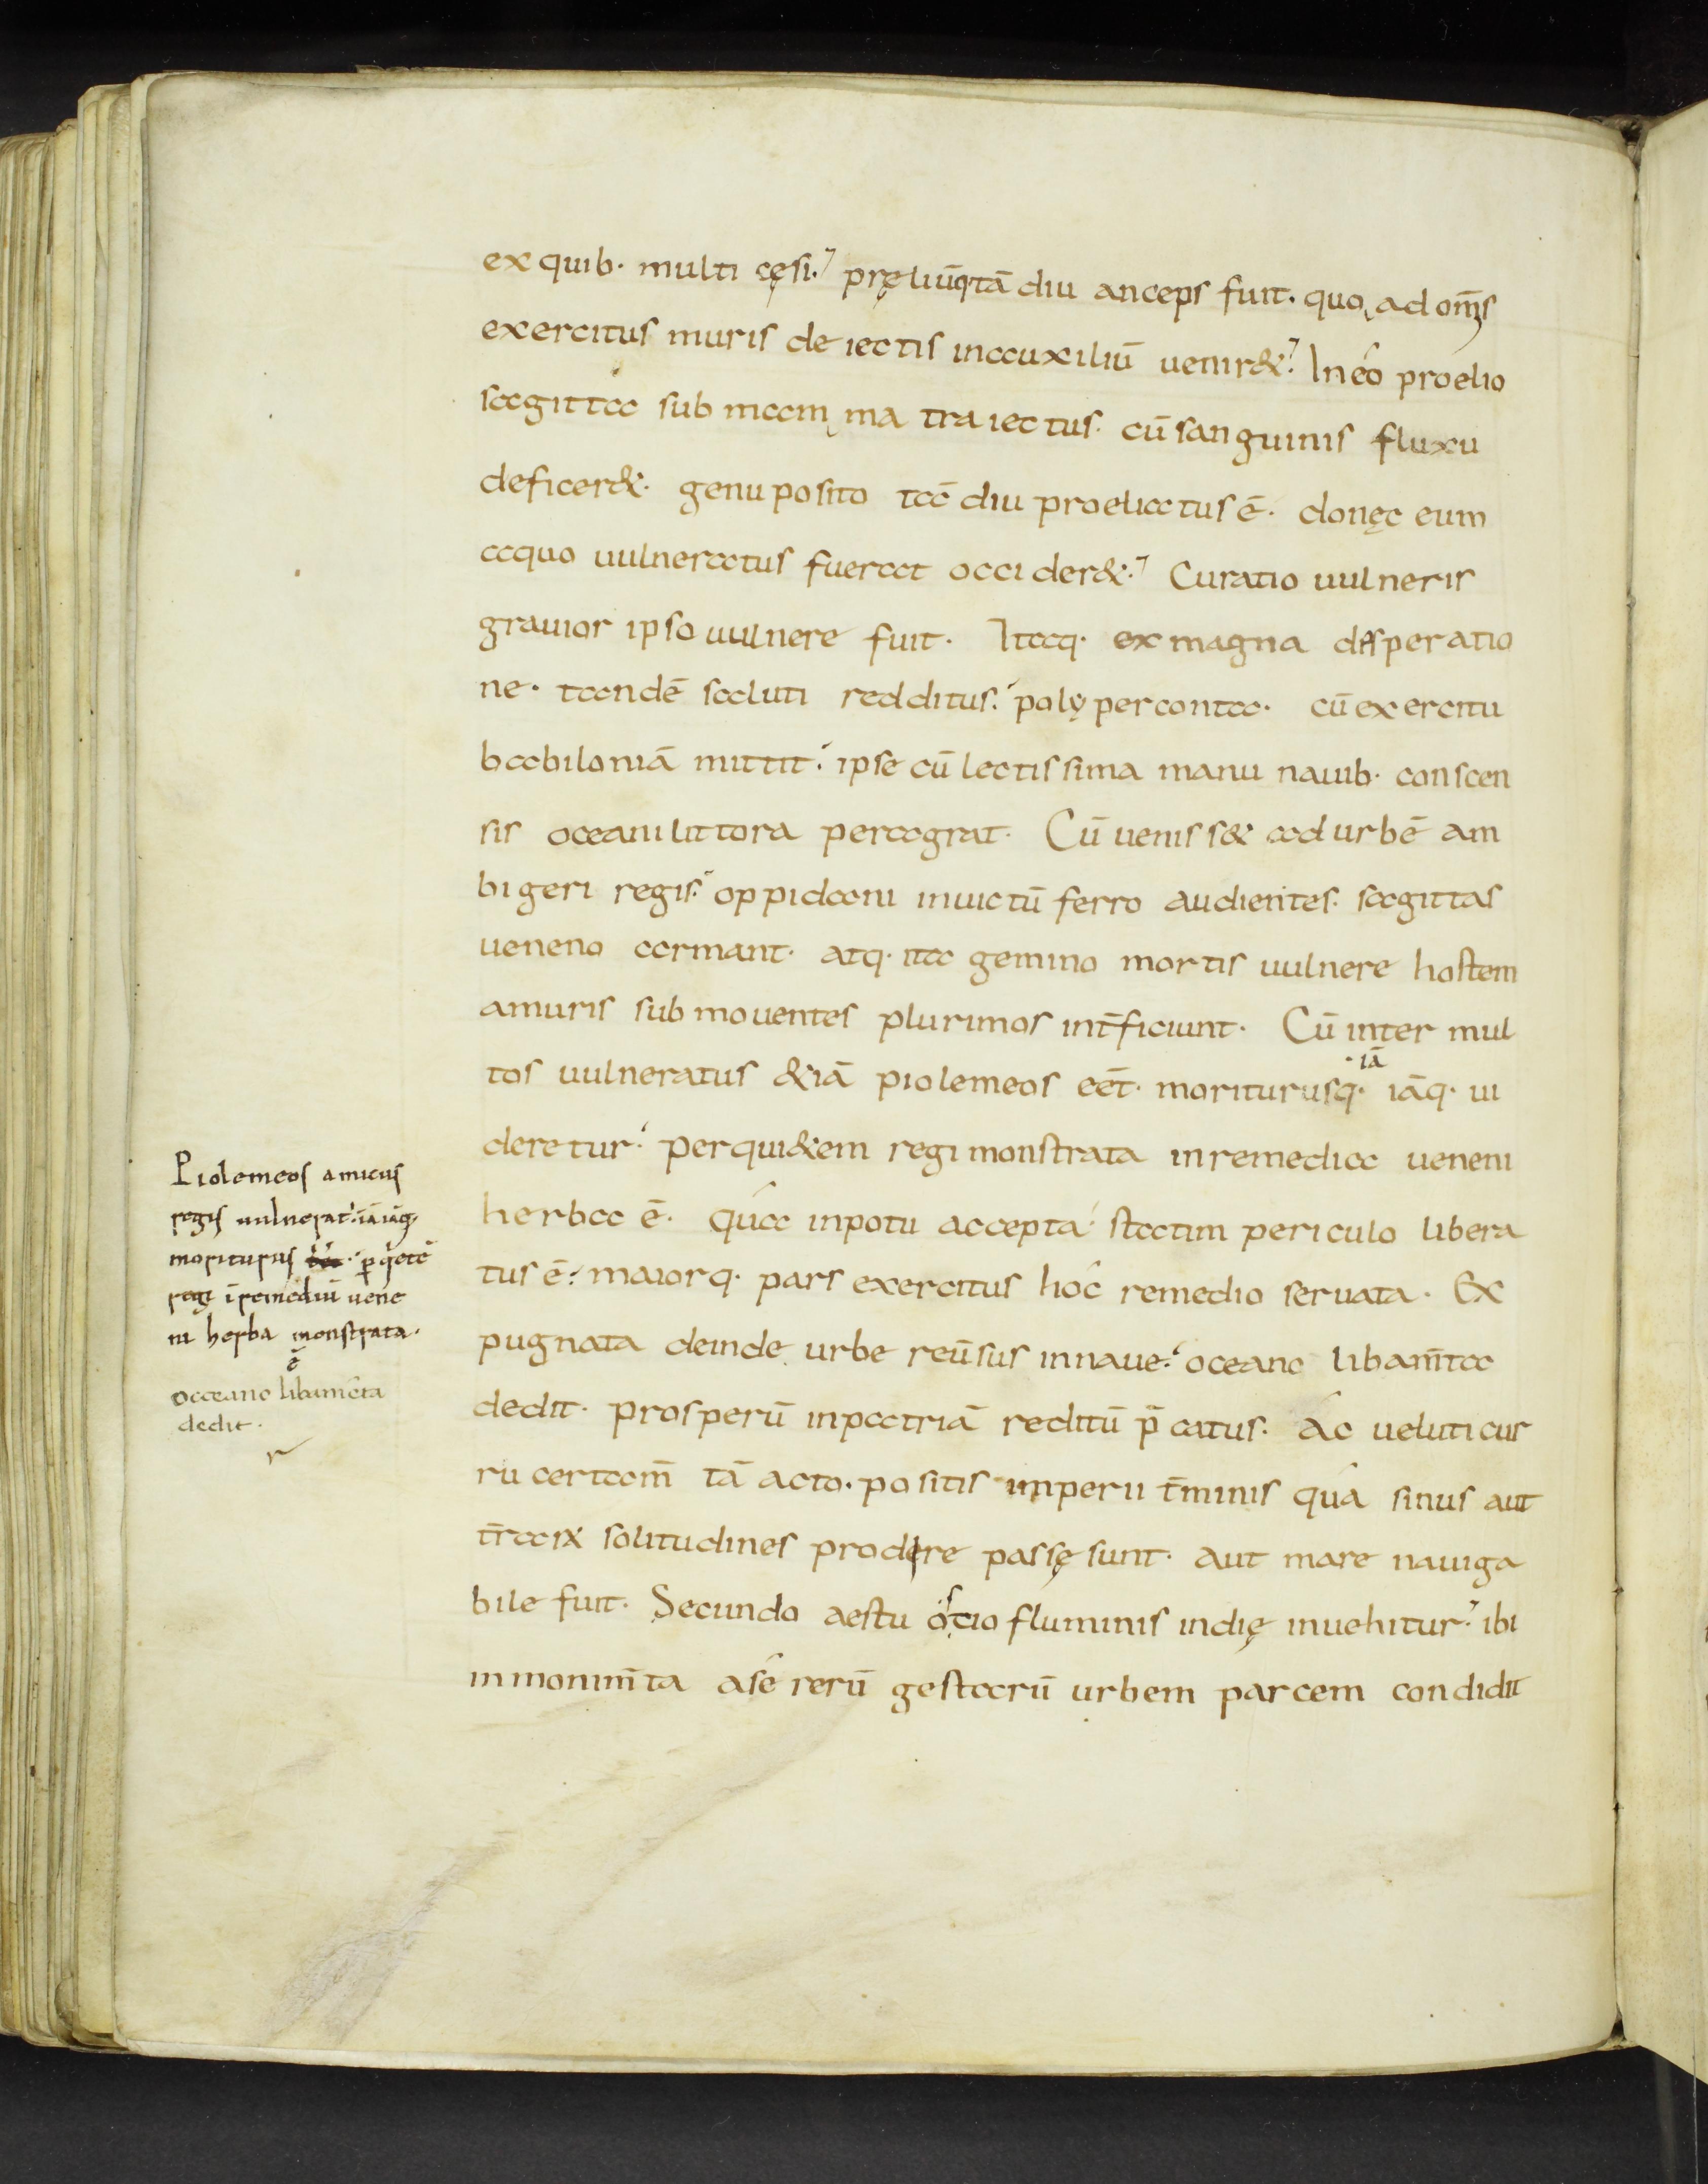 ex quib· multi cęsi·⁊ pręliūq; tā diu anceps fuit· quo, ad om̄s
exercitus muris deiectis in auxiliū uenir&·⁊ In eo proelio
sagitta sub mam,ma traiectus· cū sanguinis fluxu
deficer&· genu posito ta diu proeliatus ē· donęc eum
a quo uulneratus fuerat occider&·⁊ Curatio uulneris
grauior ipso uulnere fuit· Itaq· ex magna desperatio
ne· tandē saluti redditus· polyperconta· cū exercitu
babiloniā mittit· ipse cū lectissima manu nauib· conscen
sis oceani littora peragrat· Cū uenis s& ad urbē am
bigeri regis· oppidani inuictū ferro audientes· sagittas
ueneno armant· atq· ita gemino mortis uulnere hostem
a muris submouentes plurimos int̄ficiunt· Cū inter mul
tos uulneratus &iā piolemeos eēt· moriturusq· ·iā iāq· ui
deretur· per qui&em regi monstrata in remedia ueneni
herba ē· qua in potu accepta· statim periculo libera
tus ē· maiorq· pars exercitus hoc remedio seruata· Ex
pugnata deinde urbe reūsus in naue· oceano libam̄ta
dedit· prosperū in patriā reditū p̄catus· Ac ueluti cur
ru certam̄ tā acto· positis imperii t̄minis qua sinus aut
t̄raix solitudines prodire passę sunt· aut mare nauiga
bile fuit· Secundo aestu ostio fluminis indię inuehitur·⁊ ibi
in monim̄ta a se rerū gestarū urbem parcem condidit
Piolemeos amicus
regis uulnerat· iā iāq·
moriturus p q&ē
regi ī remediū uene
ni herba monstrata·
ē
occeano libamēta
dedit·